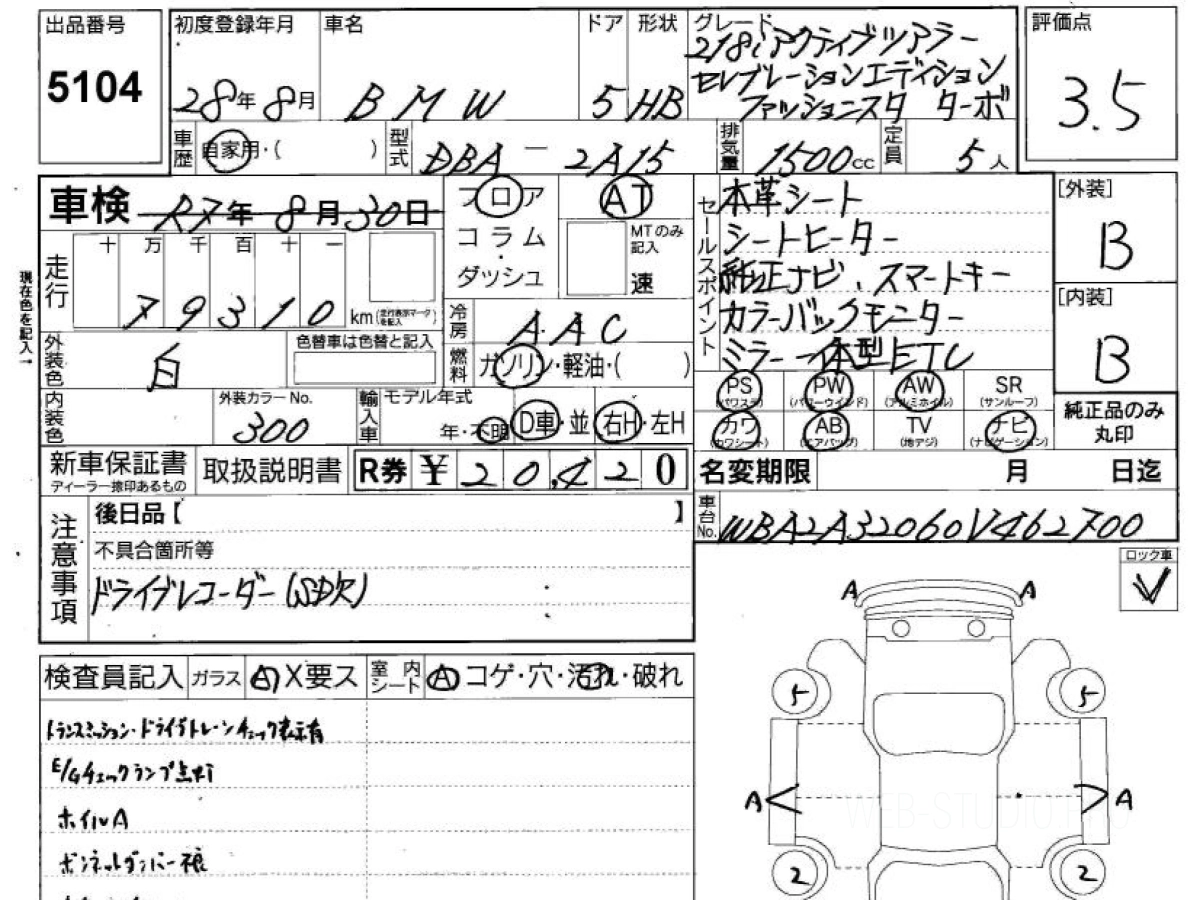 出品番号
5104
初度登録年月
28年8月
車名
BMW
ドア
5
形状
HB
グレード
218iアクティブツアラー
セレブレーションエディション
ファッショニスタ ターボ
評価点
3.5
車歴
自家用・( )
型式
DBA-2A15
排気量
1500cc
定員
5人
車検 R7年8月30日
フロア
コラム
・
ダッシュ
AT
MTのみ
記入
速
セールスポイント
本革シート
シートヒーター
純正ナビ、スマートキー
カラーバックモニター
ミラー一体型ETC
[外装]
B
[内装]
B
走行
十 万 千 百 十 一
79310 km (走行表示マークを記入)
現在色を記入→
冷房
AAC
外装色
白
色替車は色替と記入
燃料
ガソリン・軽油・( )
内装色
外装カラーNo.
300
輸入車
モデル年式
年・不明
D車・並
右H・左H
PS
(パワステ)
PW
(パワーウインド)
AW
(アルミホイル)
SR
(サンルーフ)
カワ
(カワシート)
AB
(エアバッグ)
TV
(地デジ)
ナビ
(ナビゲーション)
純正品のみ
丸印
新車保証書
ディーラー捺印あるもの
取扱説明書
R券 ¥20,420
名変期限 月 日迄
車台No.
WBA2A32060V462700
注意事項
後日品【 】
不具合箇所等
ドライブレコーダー(SD欠)
ロック車
✓
検査員記入
ガラス
A X要ス
室内シート
A コゲ・穴・汚れ・破れ
トランスミッション・ドライブトレーンチェック表示有
E/Gチェックランプ点灯
ホイルA
ボンネットダンパー痕
A A
5 5
A A
2 2
WEB-STUDIO.PRO